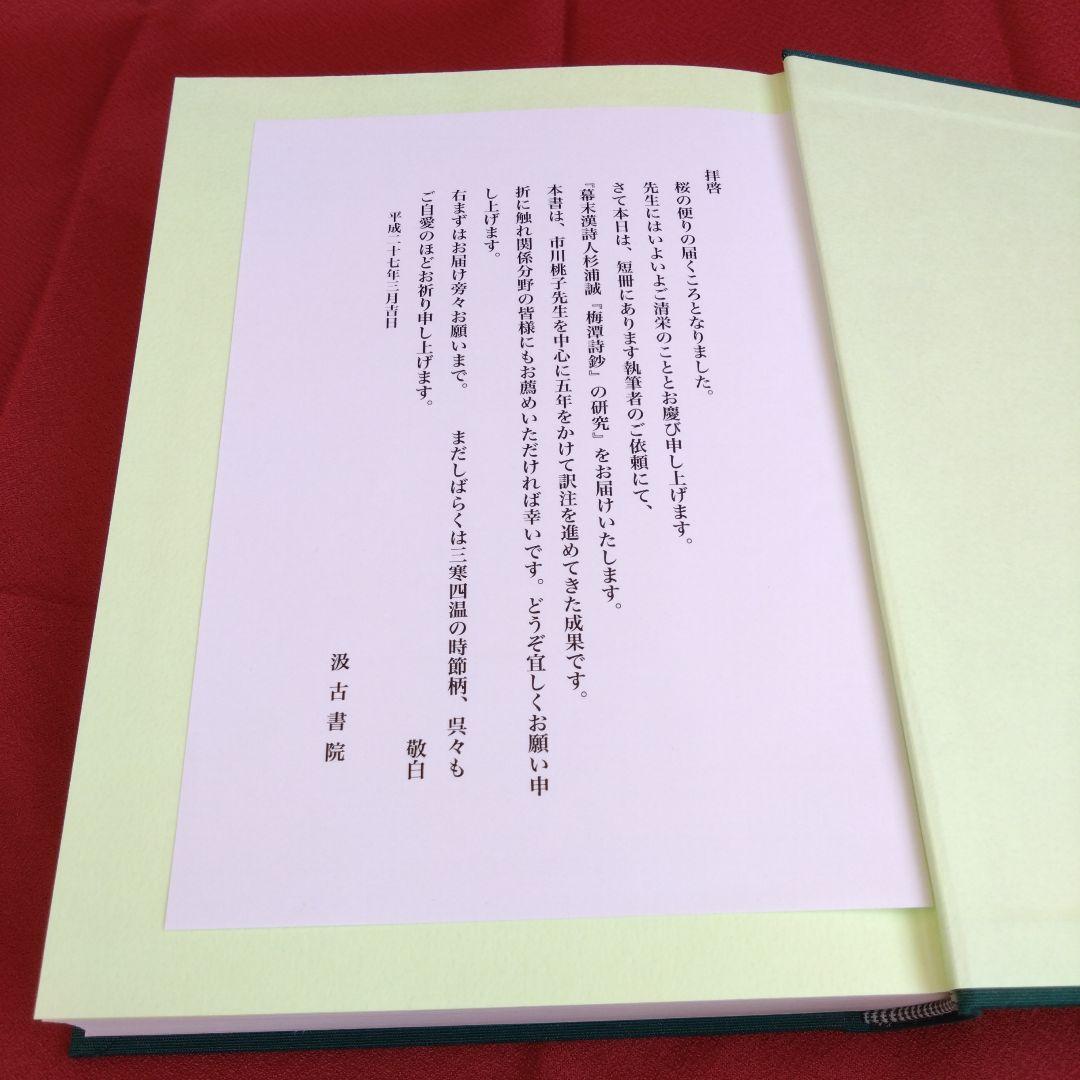 拝啓
桜の便りの届くころとなりました。
先生にはいよいよご清栄のこととお慶び申し上げます。
さて本日は、短冊にあります執筆者のご依頼にて、
『幕末漢詩人杉浦誠『梅潭詩鈔』の研究』をお届けいたします。
本書は、市川桃子先生を中心に五年をかけて訳注を進めてきた成果です。
折に触れ関係分野の皆様にもお薦めいただければ幸いです。どうぞ宜しくお願い申
し上げます。
右まずはお届け旁々お願いまで。　まだしばらくは三寒四温の時節柄、呉々も
ご自愛のほどお祈り申し上げます。
敬白
平成二十七年三月吉日
汲古書院